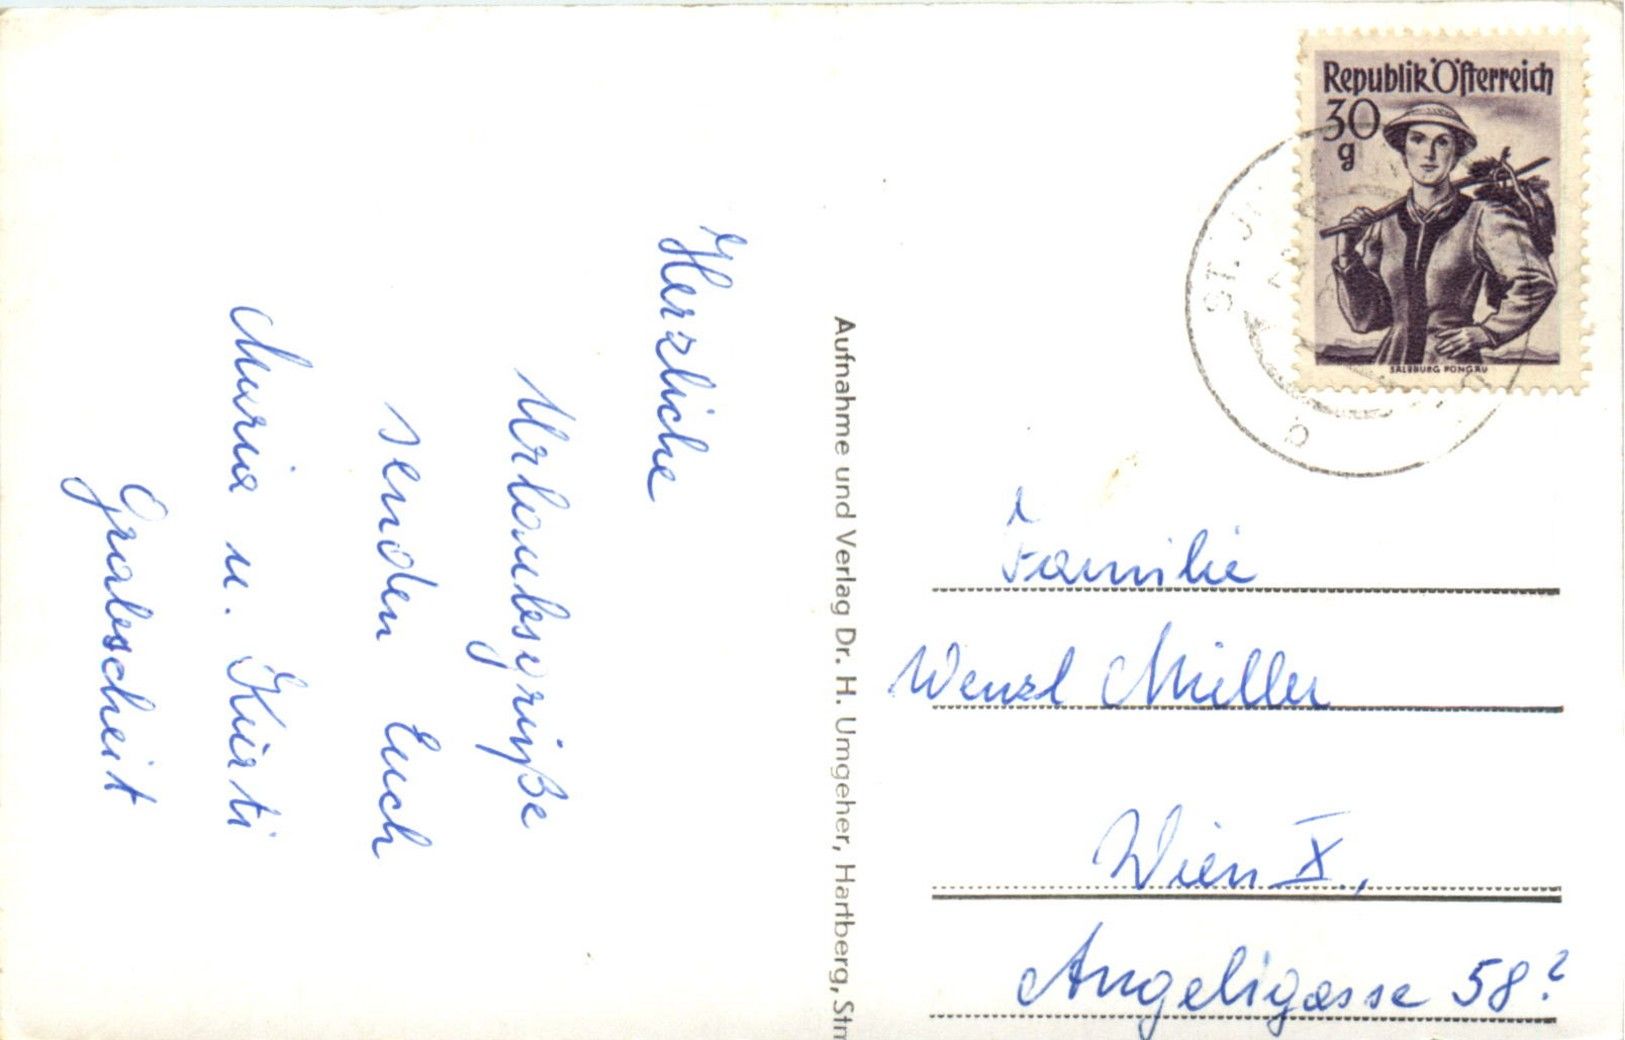 Herzliche
Urlaubsgrüße
senden Euch
Maria u. Kurti
Grabscheit
Aufnahme und Verlag Dr. H. Umgeher, Hartberg, Stm
Republik Österreich
30
g
SALZBURG PONGAU
ST. J
b
Familie
Wenzl Müller
Wien X.,
Angeligasse 58?